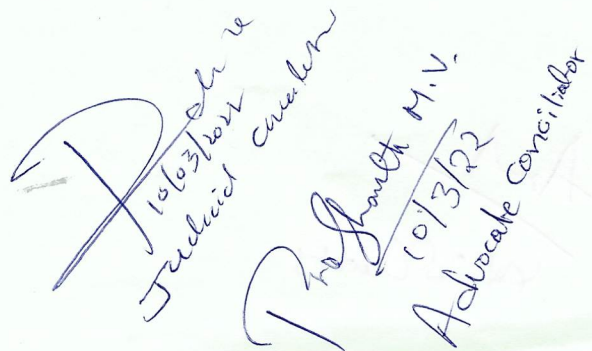 10/03/2022
Judicial
Prashanth M.V.
10/3/22
Advocate Conciliator